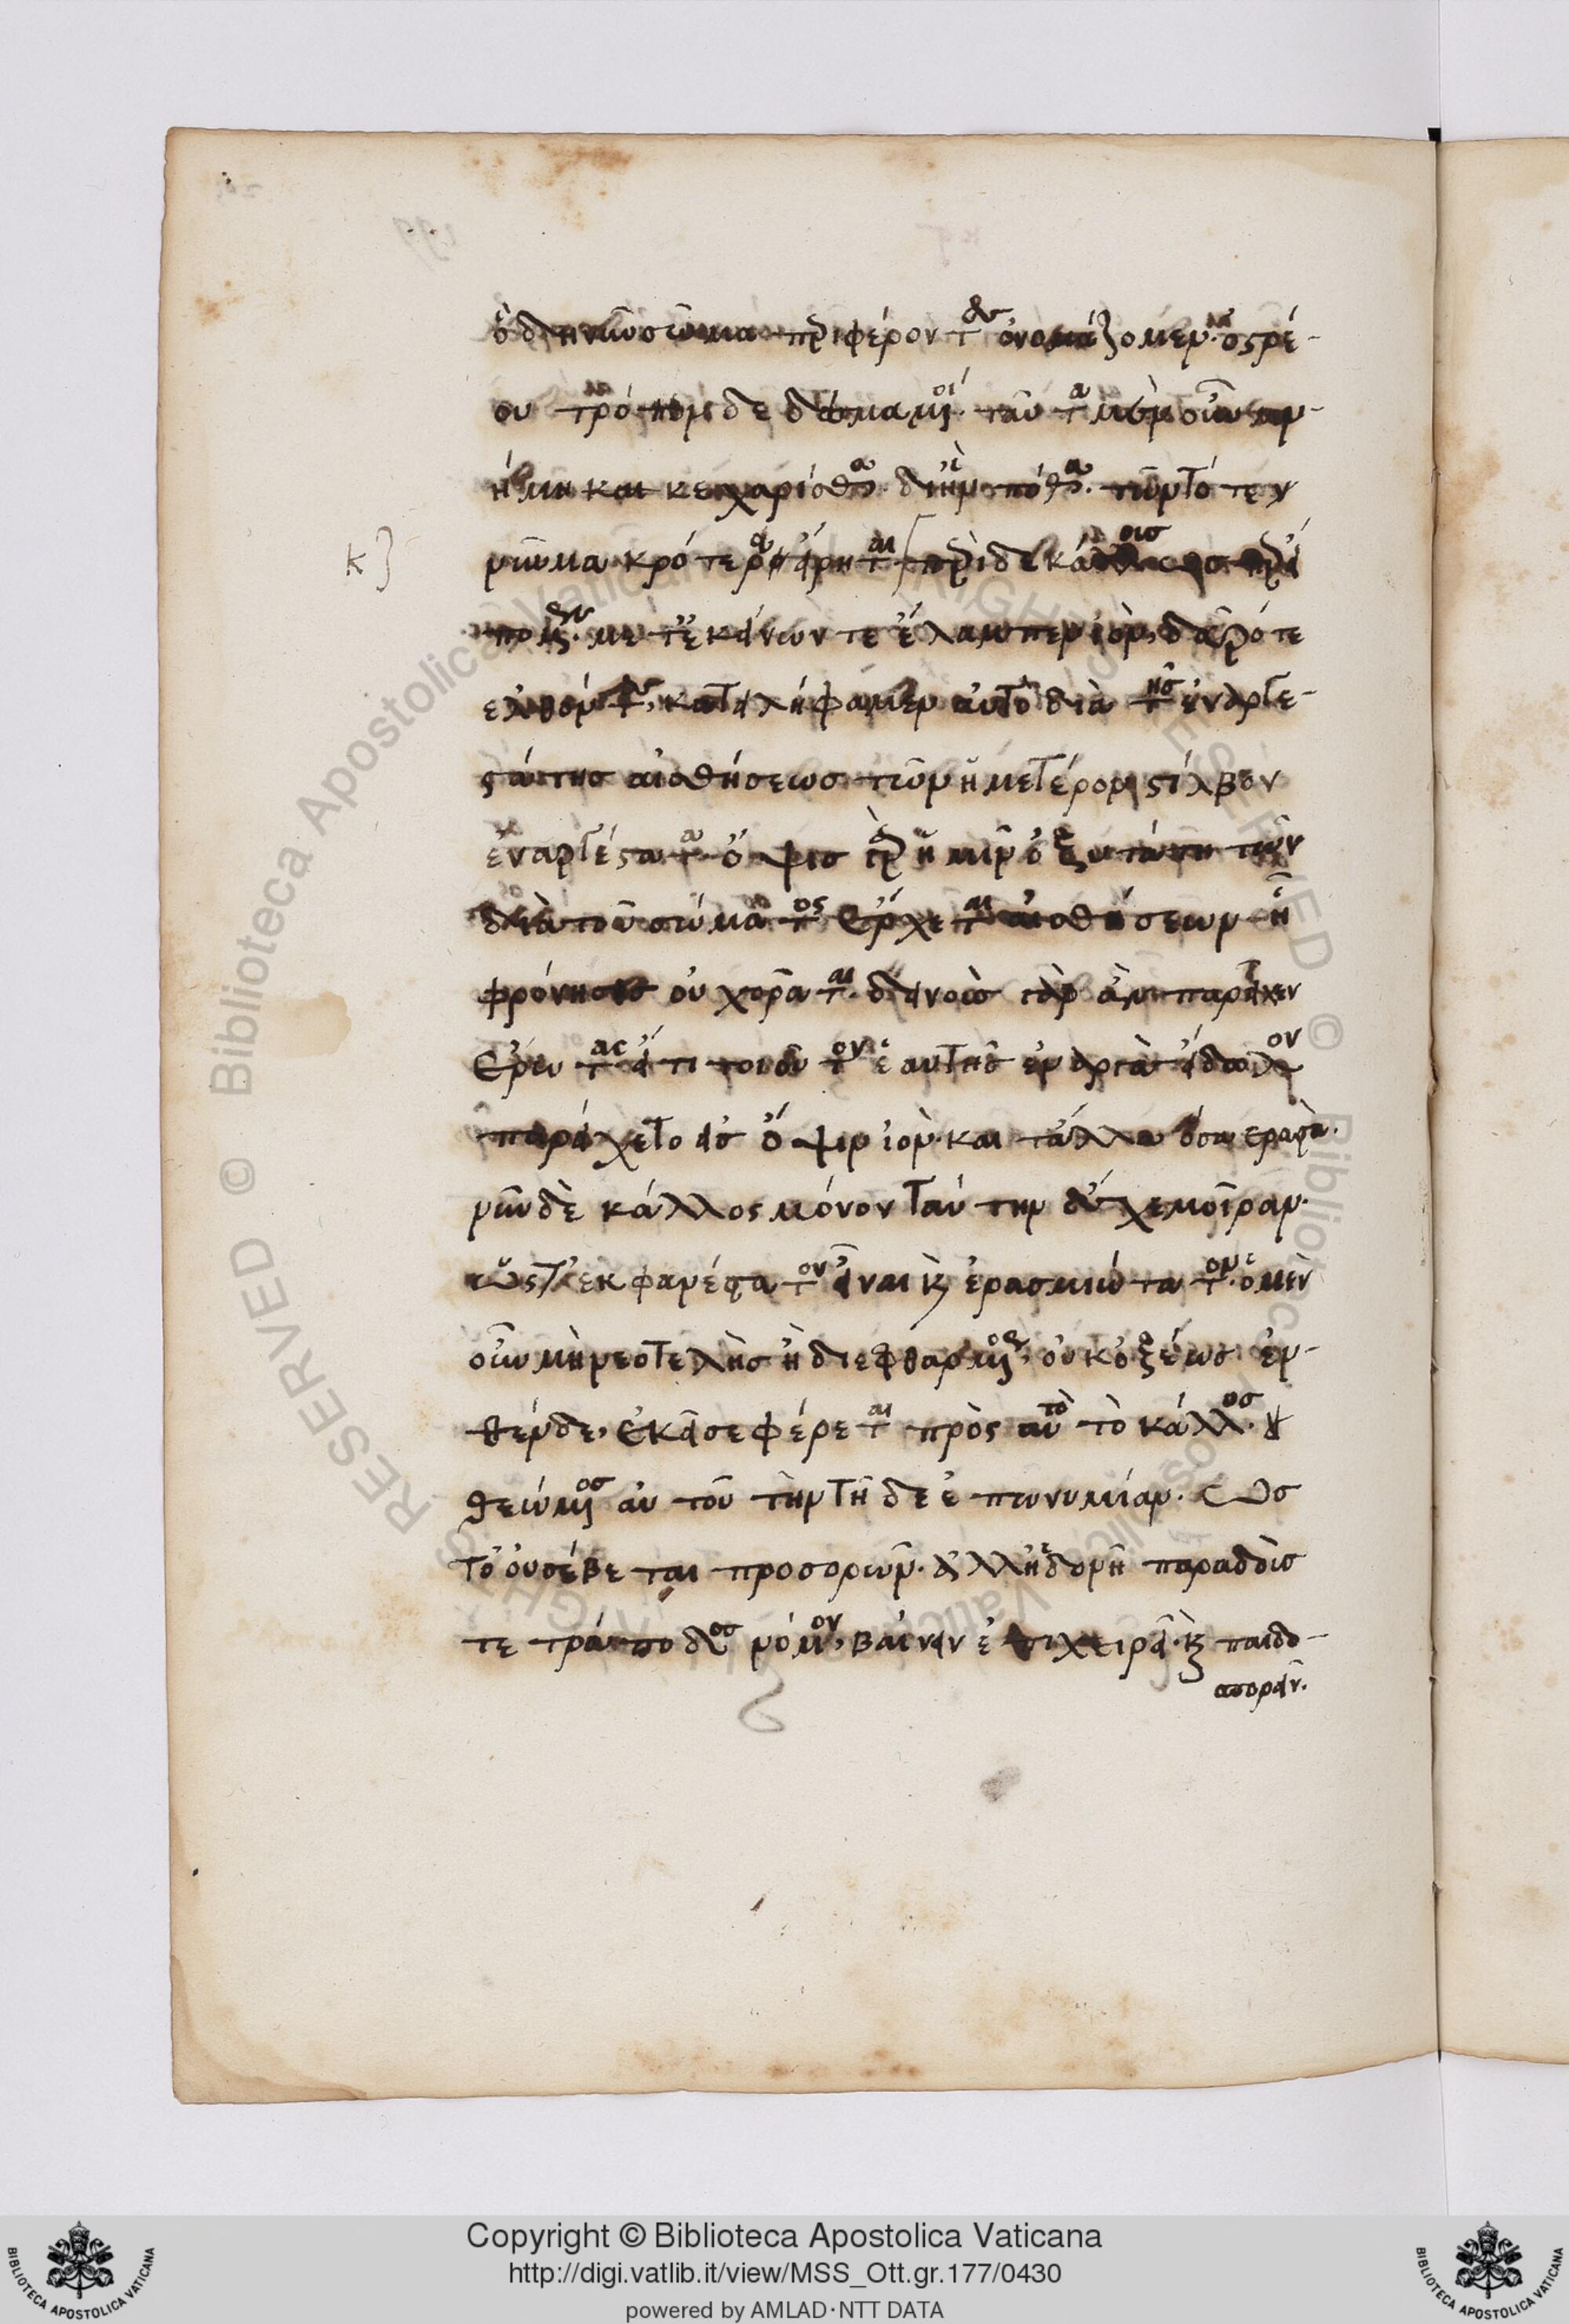 ὃ δὴ νῦν σῶμα περιφέροντες ὀνομάζομεν· ὀστρέ-
ου τρόπον δεδεσμευμένοι. ταῦτα μὲν οὖν μν-
ήμη και κεχαρίσθω. δι' ἣν πόθω. τῶν τότε ν
νῦν μακρότερα εἴρηται περὶ δε κάλλους ὥσπερ εἴ
πομεν. με τ' ἐκείνων τε ἔλαμπεν ἰὸν, δεῦρό τε
ελθόντες, κατειλήφαμεν αὐτὸ διὰ της ἐναργε-
στάτης αἰσθήσεως τῶν ἡμετέρων στίλβον
ἐναργέστατα· ὄψις γὰρ ἡμῖν ὀξυτάτη τῶν
διὰ τοῦ σώματος ἔρχεται αἰσθήσεων ᾗ
φρόνησις οὐχ ὁρᾶται. δεινοὺς γὰρ ἂν παρεῖχεν
ἔρωτας εἴ τι τοιοῦτον ἑαυτῆς ἐναργὲς εἴδωλον
παρείχετο εἰς ὄψιν ἰὸν. και τἄλλα ὅσα εραστὰ.
νῦν δὲ κάλλος μόνον ταύτην ἔσχε μοῖραν.
ὥστ' ἐκφανέστατον εἶναι κ ἐρασμιώτατον. ὁ μὲν
οὖν μὴ νεοτελὴς ἢ διεφθαρμένος, οὐκ ὀξέως ἐν-
θένδε, ἐκεῖσε φέρεται πρὸς αὐτὸ τὸ κάλλος.
θεώμενος αὐτοῦ τὴν τῇδε ἐπωνυμίαν. ὥσ
τ' οὐ σέβεται προσορῶν. ἀλλ' ἡδονῇ παραδοὺς
τετράποδος νόμον, βαίνειν ἐπιχειρεῖ. κ παιδο-
σπορεῖν.
Copyright © Biblioteca Apostolica Vaticana
http://digi.vatlib.it/view/MSS_Ott.gr.177/0430
powered by AMLAD·NTT DATA